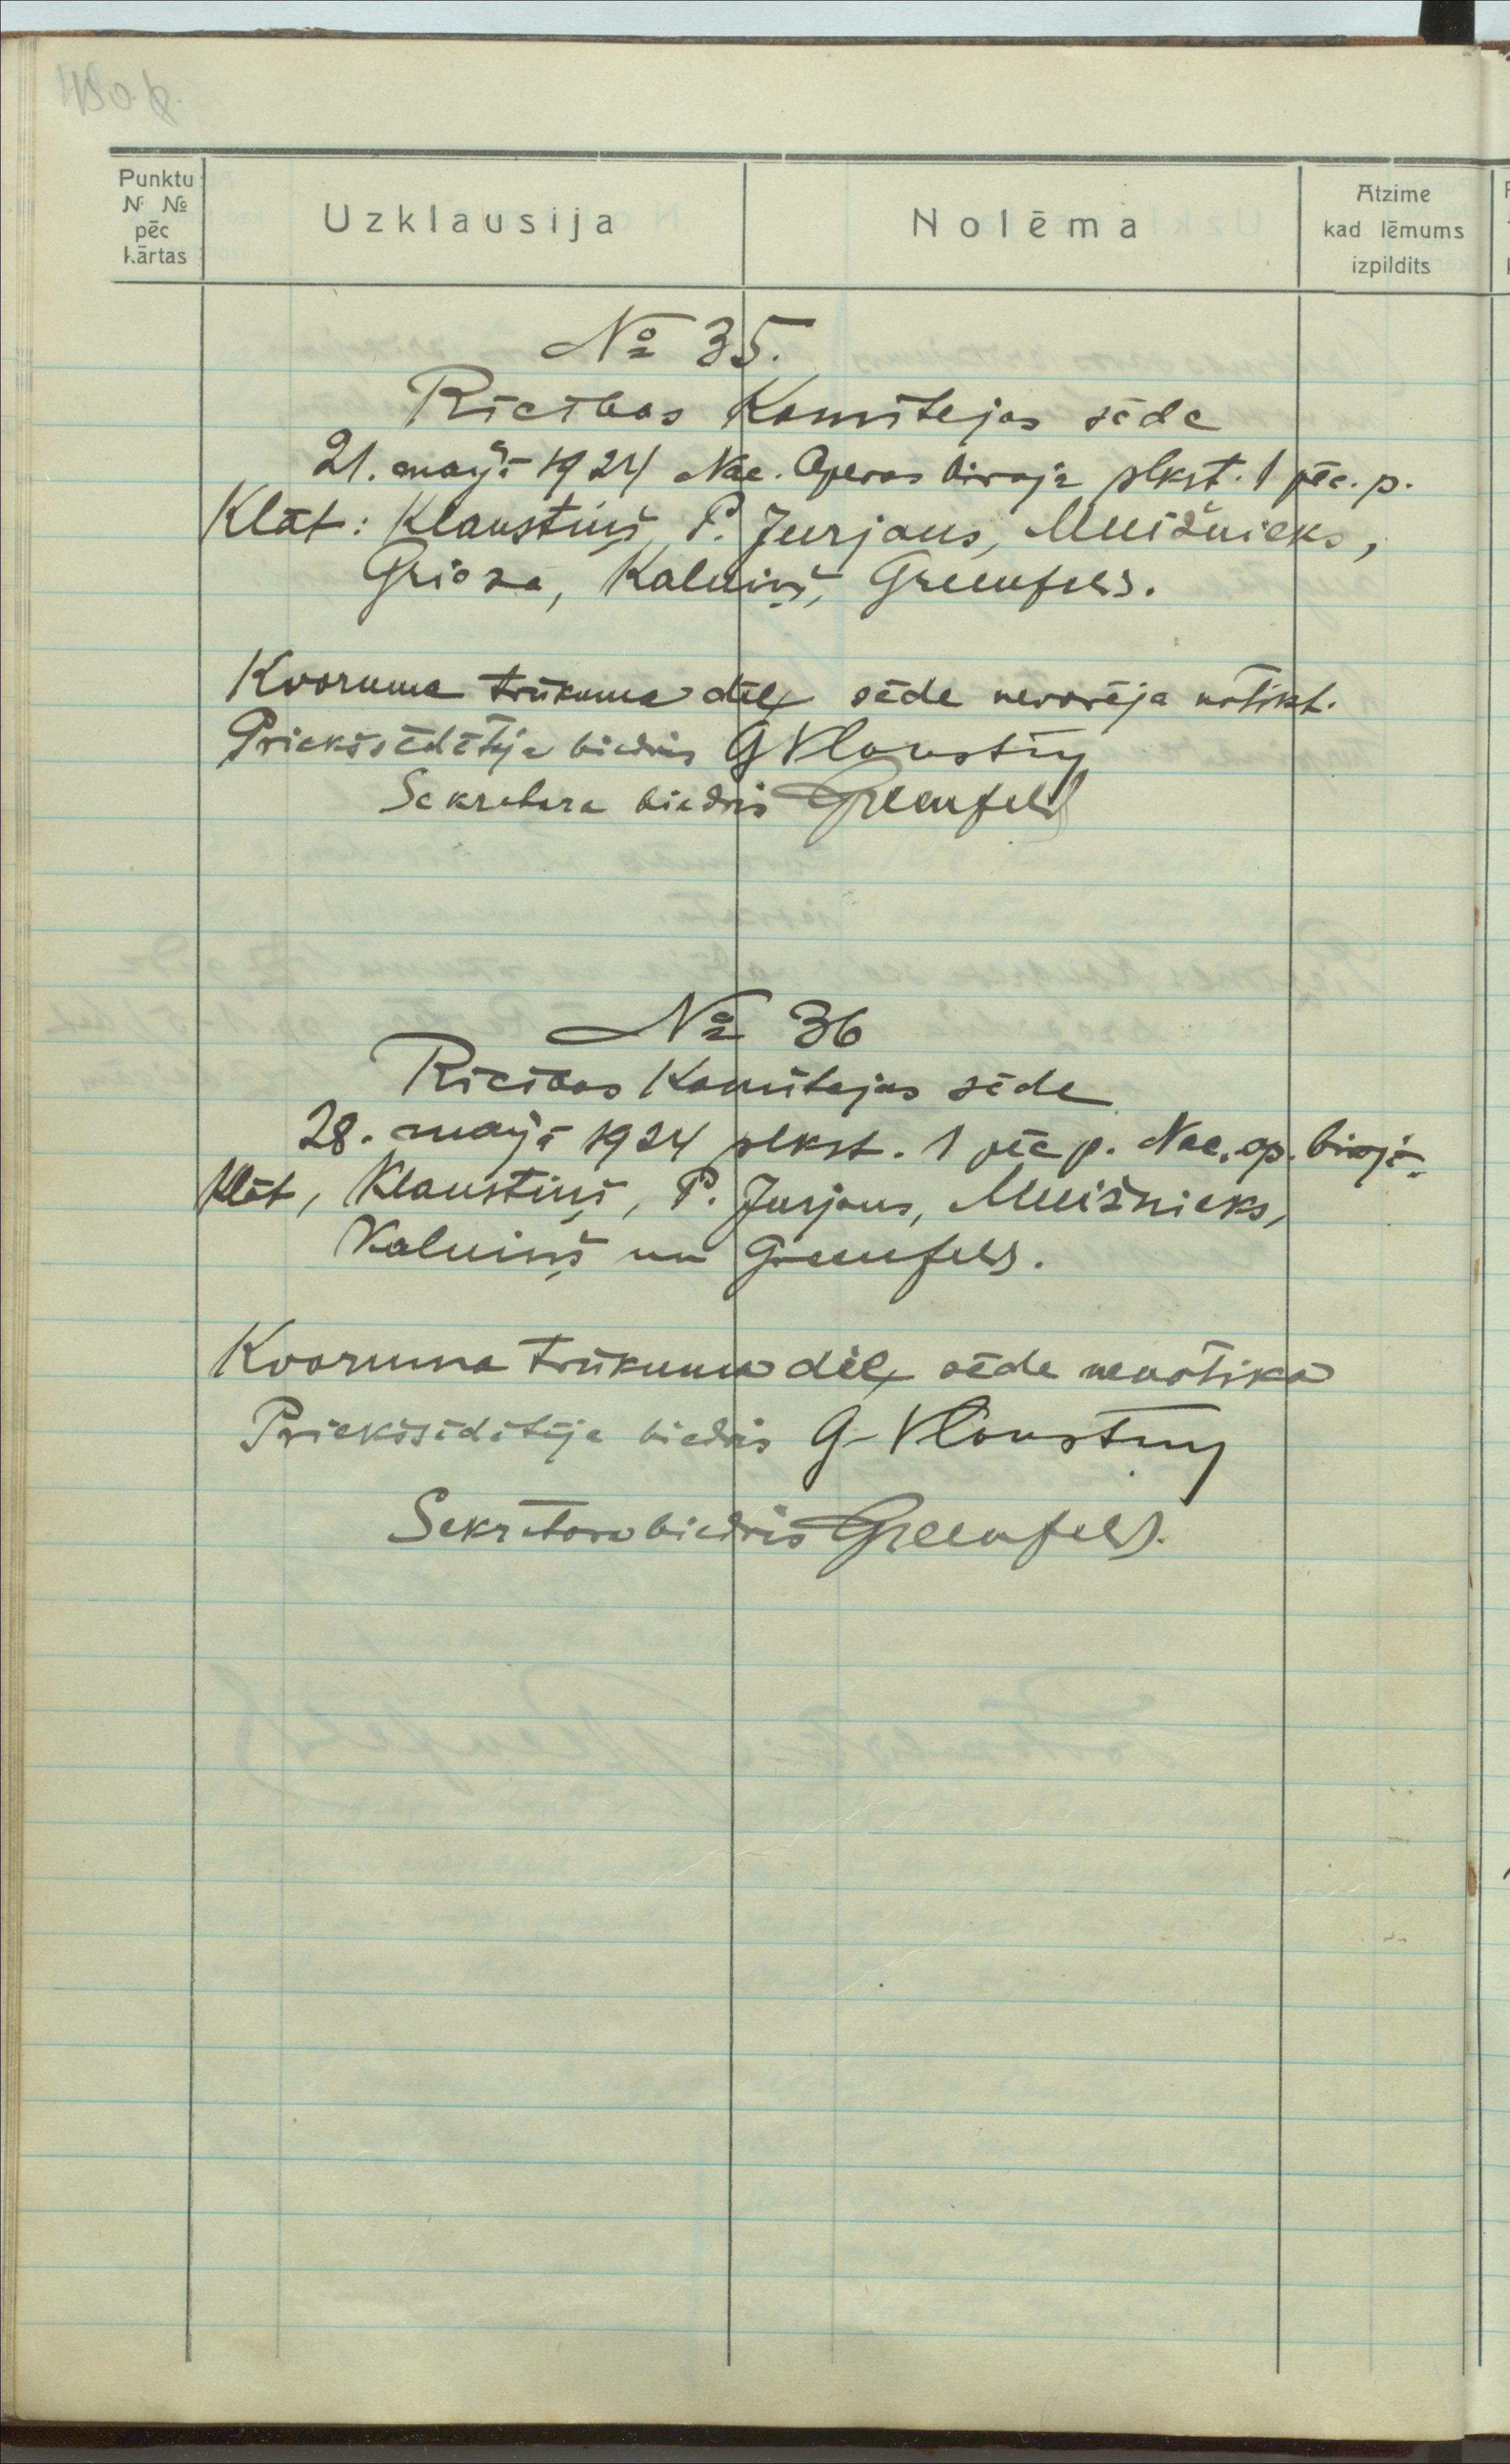 48 o.p.
Punktu
N № 
pēc
kārtas
Uzklausija
Nolēma
Atzime
kad lēmums
izpildits
№ 35.
Rīcības Komitejas sēde
21. maijā 1924 Nac. Operas birojā plkst. 1 pēc. p.
Klāt: Klaustiņš, P. Jurjans, Muižnieks,
Grioza, Kalniņš, Greenfelds.
Kvoruma trūkuma dēļ sēde nevarēja notikt.
Priekšsēdētāja biedris G Klaustiņ
Sekretara biedris Greenfeld
№ 36
Rīcības Komitejas sēde
28. maijā 1924 plkst. 1 pēc p. Nac. op. birojā.
Klāt, Klaustiņš, P. Jurjans, Muižnieks,
Kalniņš un Greenfelds.
Kvoruma trūkuma dēļ sēde nenotika
Priekšsēdētāja biedris G Klaustiņ
Sekretara biedris Greenfelds.